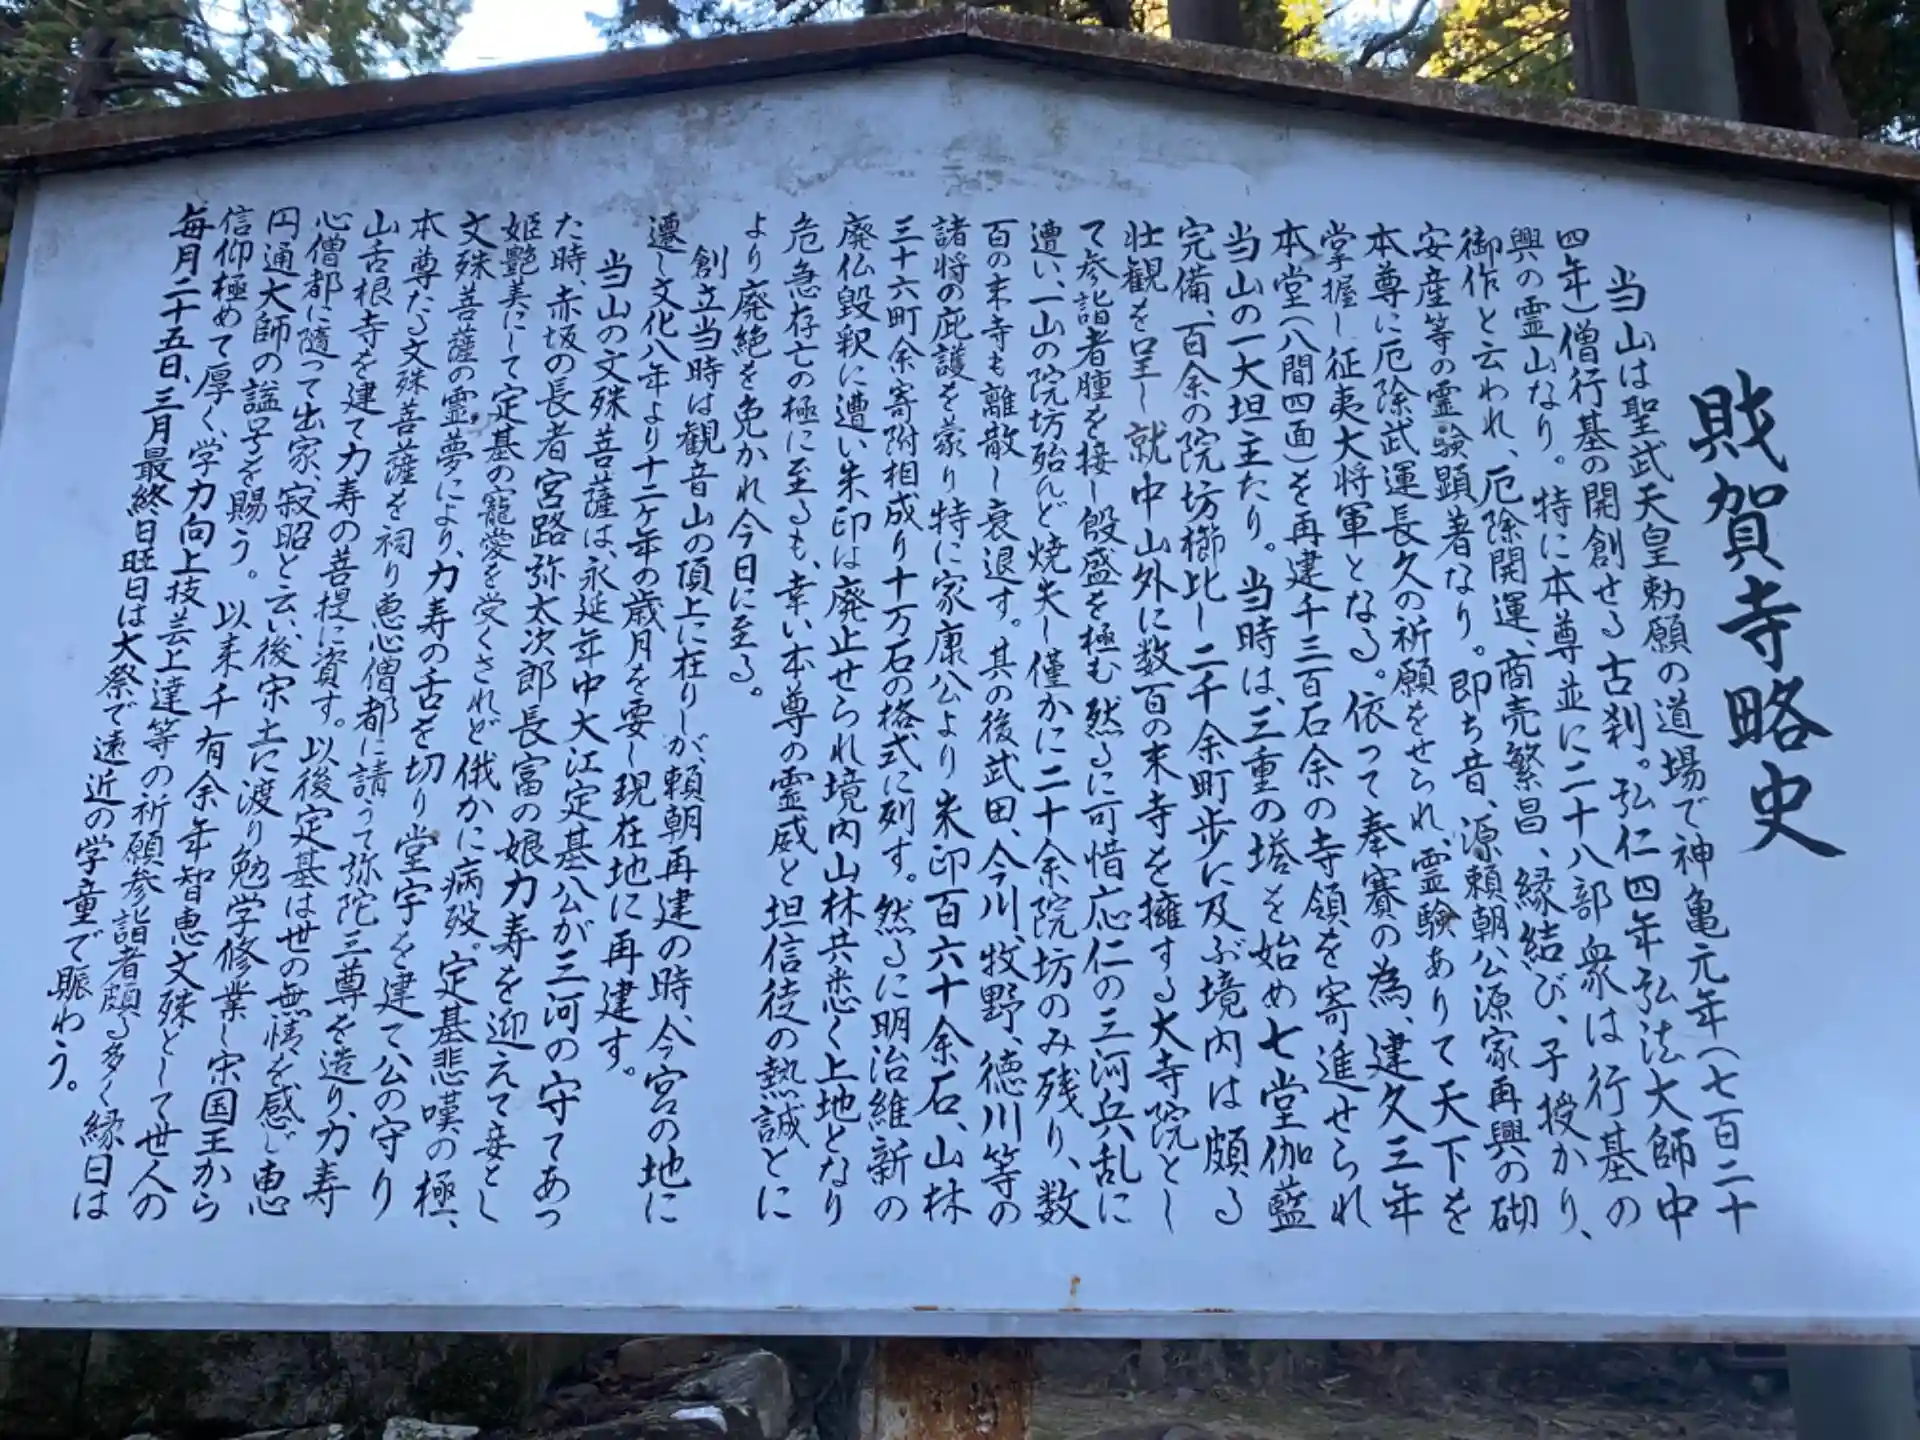 財賀寺略史
当山は聖武天皇勅願の道場で神亀元年(七百二十
四年)僧行基の開創せる古刹。弘仁四年弘法大師中
興の霊山なり。特に本尊並に二十八部衆は行基の
御作と云われ、厄除開運、商売繁昌、縁結び、子授かり、
安産等の霊験顕著なり。即ち昔、源頼朝公源家再興の砌
本尊に厄除武運長久の祈願をせられ、霊験ありて天下を
掌握し征夷大将軍となる。依って奉賽の為、建久三年
本堂(八間四面)を再建千三百石余の寺領を寄進せられ
当山の一大坦主たり。当時は、三重の塔を始め七堂伽藍
完備、百余の院坊櫛比し二千余町歩に及ぶ境内は頗る
壮観を呈し就中山外に数百の末寺を擁する大寺院とし
て参詣者腫を接し殷盛を極む然るに可惜応仁の三河兵乱に
遭い、一山の院坊殆んど焼失し僅かに二十余院坊のみ残り、数
百の末寺も離散し衰退す。其の後武田、今川、牧野、徳川等の
諸将の庇護を蒙り特に家康公より朱印百六十余石、山林
三十六町余寄附相成り十万石の格式に列す。然るに明治維新の
廃仏毀釈に遭い朱印は廃止せられ境内山林共悉く上地となり
危急存亡の極に至るも、幸い本尊の霊威と坦信徒の熱誠とに
より廃絶を免かれ今日に至る。
創立当時は観音山の頂上に在りしが頼朝再建の時、今宮の地に
遷し文化八年より十二ヶ年の歳月を要し現在地に再建す。
当山の文殊菩薩は、永延年中大江定基公が三河の守てあっ
た時、赤坂の長者宮路弥太次郎長富の娘力寿を迎えて妾とし
姫艶美にして定基の寵愛を受くされど俄かに病歿。定基悲嘆の極、
文殊菩薩の霊夢により、力寿の舌を切り堂宇を建て公の守り
本尊たる文殊菩薩を祠り恵心僧都に請うて弥陀三尊を造り、力寿
山舌根寺を建て力寿の菩提に資す。以後定基は世の無情を感じ恵
心僧都に随って出家、寂昭と云い、後宋土に渡り勉学修業し宋国王から
円通大師の謚号を賜う。以来千有余年智恵文殊として世人の
信仰極めて厚く、学力向上技芸上達等の祈願参詣者頗る多く縁日は
毎月二十五日、三月最終日旺日は大祭で遠近の学童で賑わう。